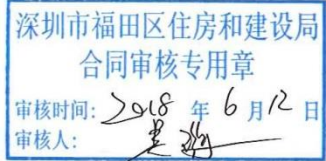 深圳市福田区住房和建设局
合同审核专用章
审核时间: 2018 年 6 月 12 日
审核人: